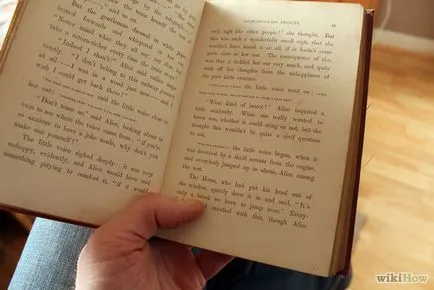 But the gentleman dressed in white paper
leaned forwards and
"Never mind what they all say, my dear, but
take a return-ticket every time the train stops."
"Indeed I shan't!" Alice said rather
"I don't belong to this railway journey
at all—I was in a wood just now—and I
wish I could get back there!"
said the little voice close to
"Don't tease so," said Alice, looking about in
vain to see where the voice came from; "if you're
so anxious to have a joke made, why don't you
make one yourself?"
The little voice sighed deeply: it was very
unhappy, evidently, and Alice would have said
something pitying to comfort it, "if it would
LOOKING-GLASS INSECTS.
only sigh like other people!" she thought. But
this was such a wonderfully small sigh, that she
wouldn't have heard it at all, if it hadn't come
quite close to her ear. The consequence of this
was that it tickled her ear very much, and quite
took off her thoughts from the unhappiness of
the poor little creature.
the little voice went on;
"What kind of insect?" Alice inquired a
little anxiously. What she really wanted to
know was, whether it could sting or not, but she
thought this wouldn't be quite a civil question
to ask.
the little voice began, when it
was drowned by a shrill scream from the engine,
and everybody jumped up in alarm, Alice among
the rest.
The Horse, who had put his head out of
the window, quietly drew it in and said, "It's
only a brook we have to jump over." Every-
satisfied with this, though Alice
wikiHow